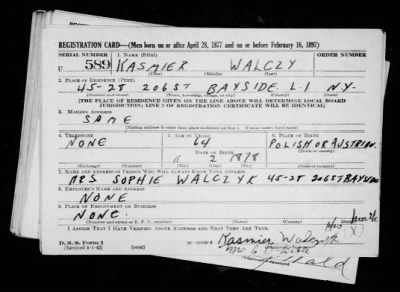 REGISTRATION CARD—(Men born on or after April 28, 1877 and on or before February 16, 1897)
SERIAL NUMBER 1. NAME (Print) ORDER NUMBER
U 589 KASMIER WALCZY
(First) (Middle) (Last)
2. PLACE OF RESIDENCE (Print)
45-28 206 ST BAYSIDE L-I N.Y.
(Number and street) (Town, township, village, or city) (County) (State)
[THE PLACE OF RESIDENCE GIVEN ON THE LINE ABOVE WILL DETERMINE LOCAL BOARD
JURISDICTION; LINE 2 OF REGISTRATION CERTIFICATE WILL BE IDENTICAL]
3. MAILING ADDRESS
SAME
(Mailing address if other than place indicated on line 2. If same insert word same)
4. TELEPHONE 5. AGE IN YEARS 6. PLACE OF BIRTH
NONE 64 POLISH OR AUSTRIAN
DATE OF BIRTH
2 1878
(Exchange) (Number) (Mo.) (Day) (Yr.) (State or country)
7. NAME AND ADDRESS OF PERSON WHO WILL ALWAYS KNOW YOUR ADDRESS
MRS SOPHIE WALCZYK 45-28 206 ST
8. EMPLOYER'S NAME AND ADDRESS
NONE
9. PLACE OF EMPLOYMENT OR BUSINESS
NONE
(Number and street or R. F. D. number) (Town) (County) (State)
I AFFIRM THAT I HAVE VERIFIED ABOVE ANSWERS AND THAT THEY ARE TRUE.
His mark
(X)
D. S. S. Form 1
(Revised 4-1-42) (over)
Kasmier